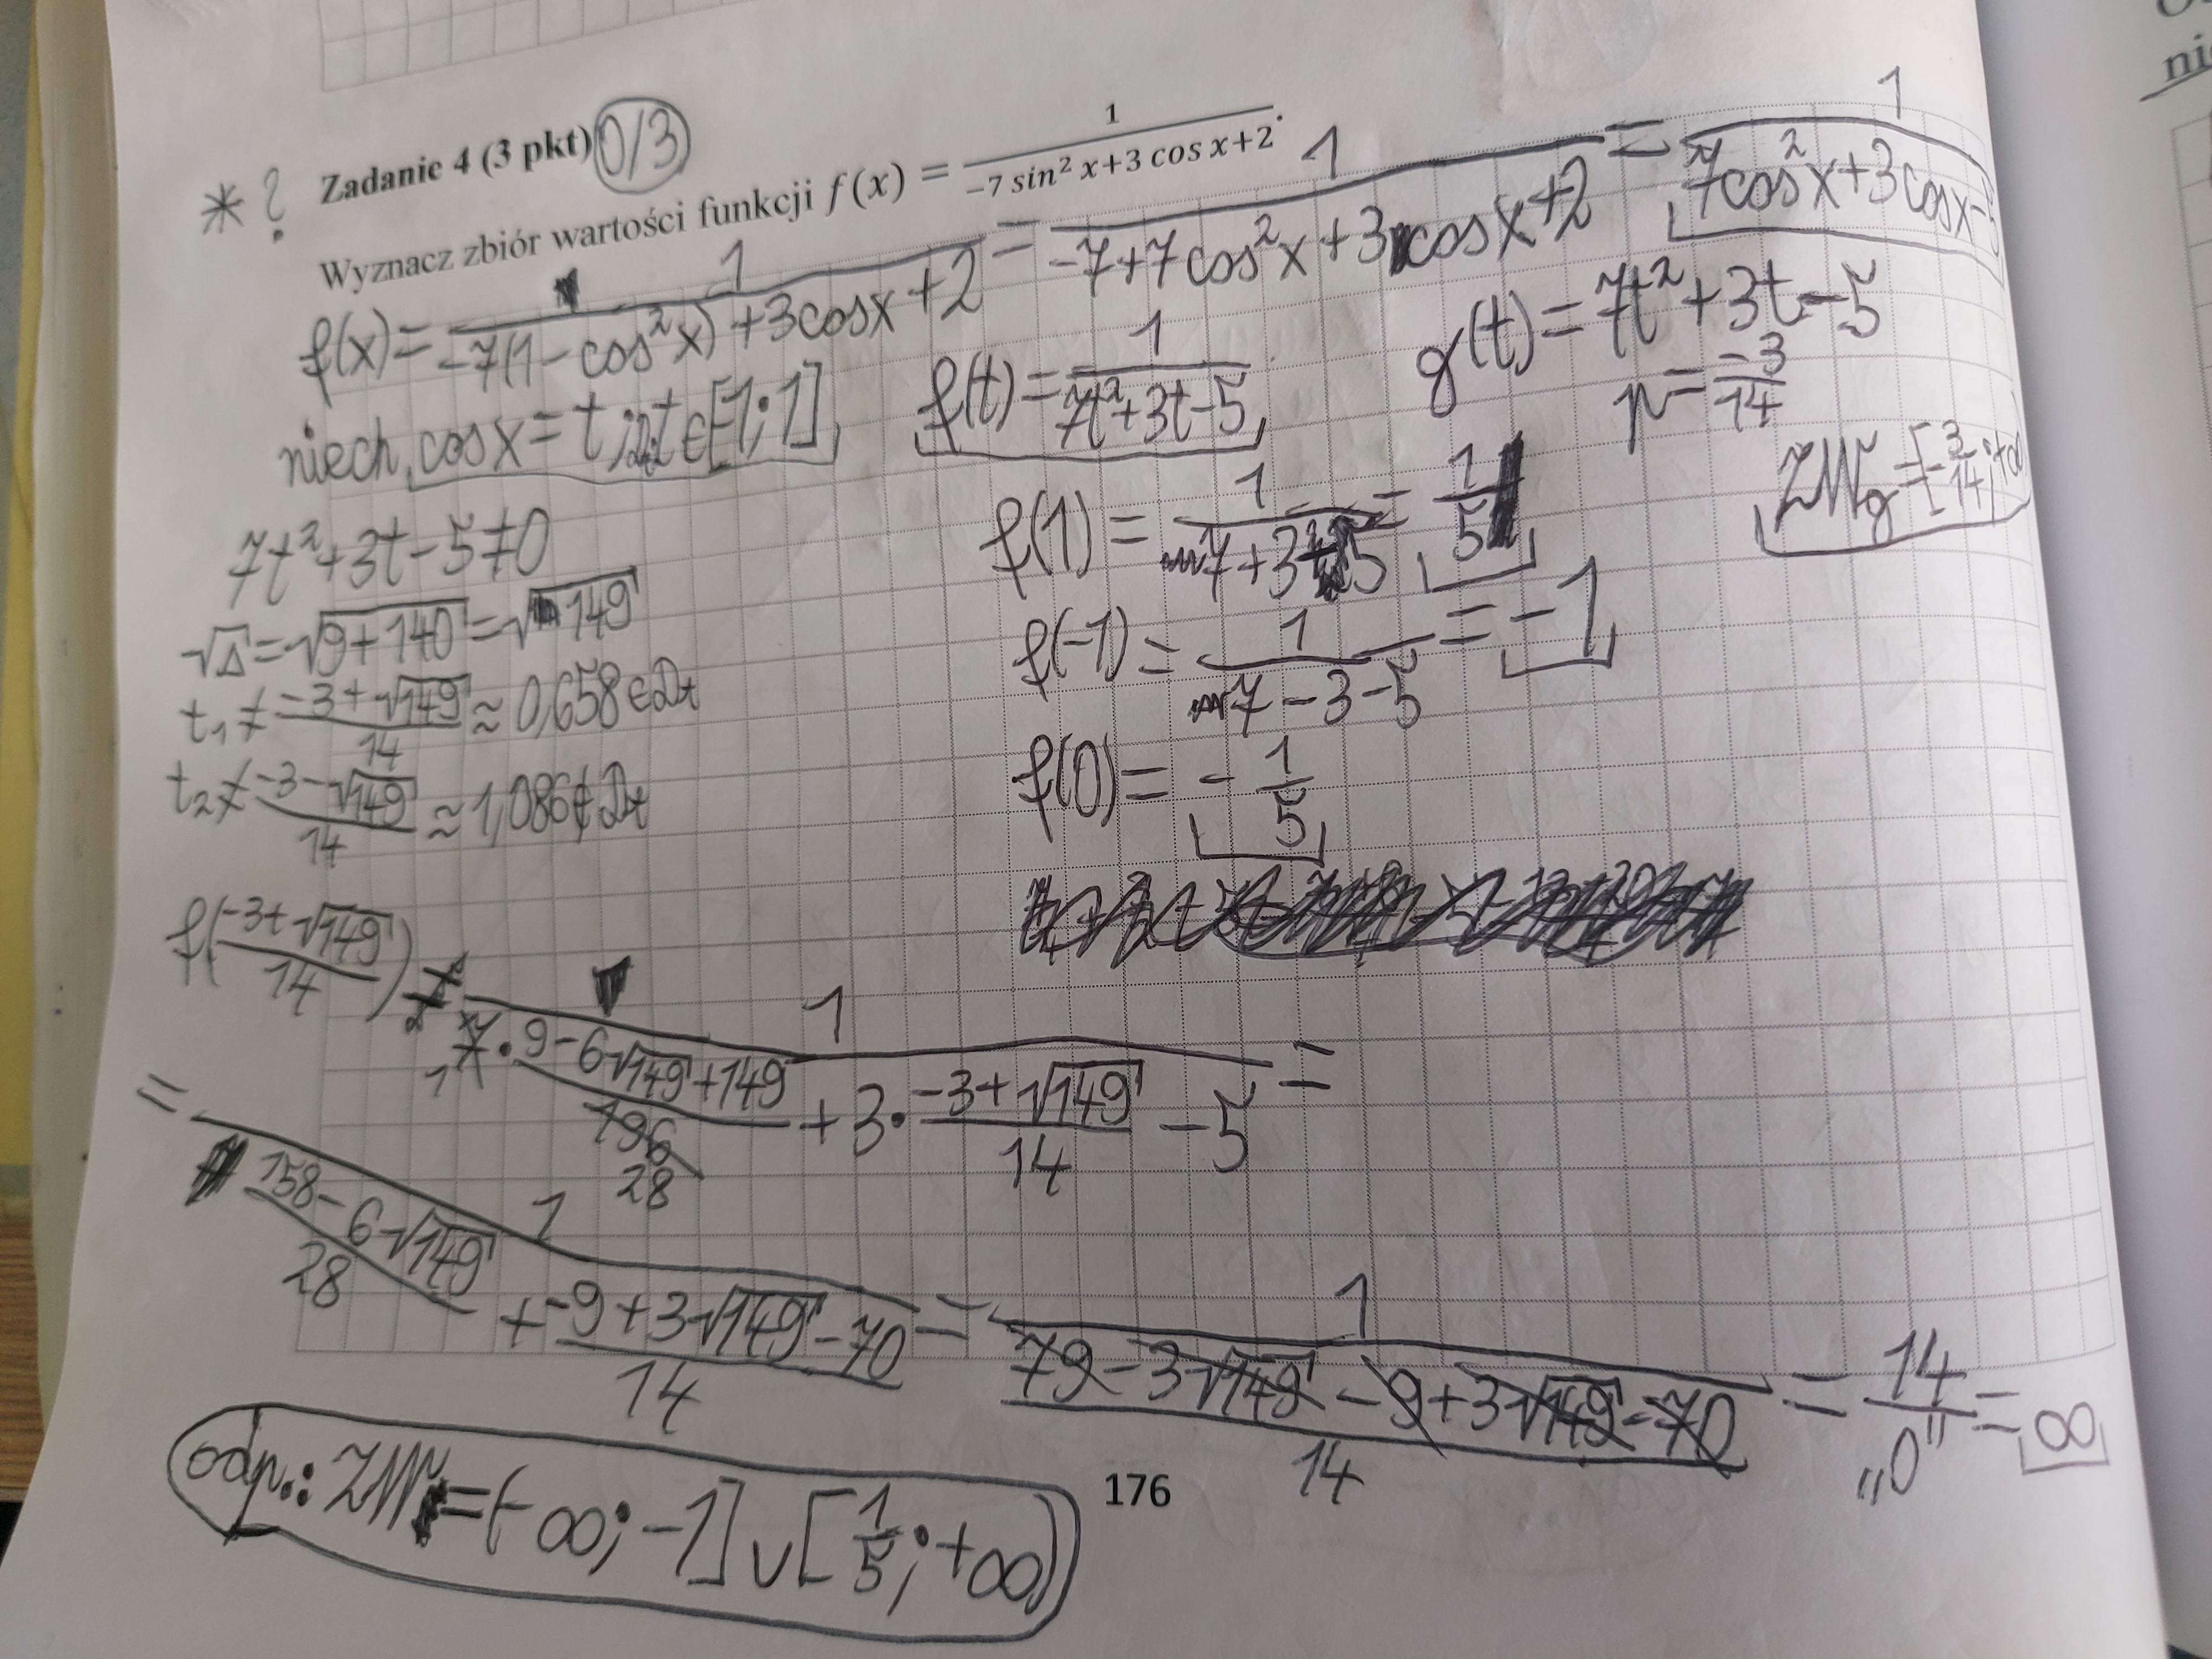 * ? Zadanie 4 (3 pkt) 0/3
Wyznacz zbiór wartości funkcji f(x) = 1/(-7 sin² x+3 cos x+2).
f(x) = 1/(-7(1-cos²x)+3cosx+2) = 1/(-7+7cos²x+3cosx+2) = 1/(7cos²x+3cosx-5)
niech cosx=t; t∈[-1;1]
f(t) = 1/(7t²+3t-5)
g(t) = 7t²+3t-5
p = -3/14
ZWg = [-3/14; +∞)
7t²+3t-5≠0
√Δ=√(9+140)=√149
t₁ ≠ (-3+√149)/14 ≈ 0,658 ∈ Dt
t₂ ≠ (-3-√149)/14 ≈ 1,086 ∉ Dt
f(1) = 1/(7+3-5) = 1/5
f(-1) = 1/(7-3-5) = -1
f(0) = -1/5
f((-3+√149)/14) = 1/(7·(9-6√149+149)/196 28 + 3·(-3+√149)/14 - 5) =
= 1/((158-6√149)/28 + (-9+3√149-70)/14) = 1/((79-3√149-9+3√149-70)/14) = 14/„0" = ∞
odp.: ZW = (-∞; -1] ∪ [1/5; +∞)
176
ni